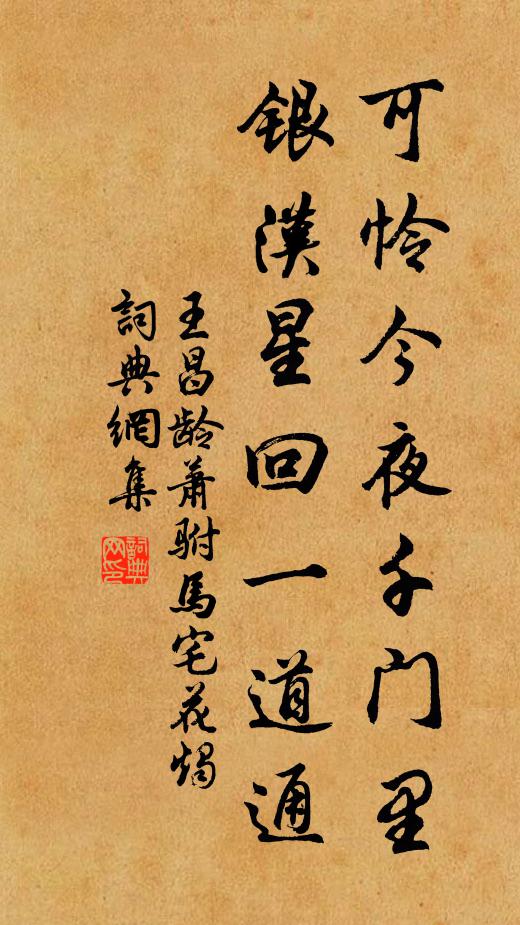 可怜今夜千门里
银漢星回一道通
王昌龄萧駙馬宅花燭
詞典網集
詞典网印